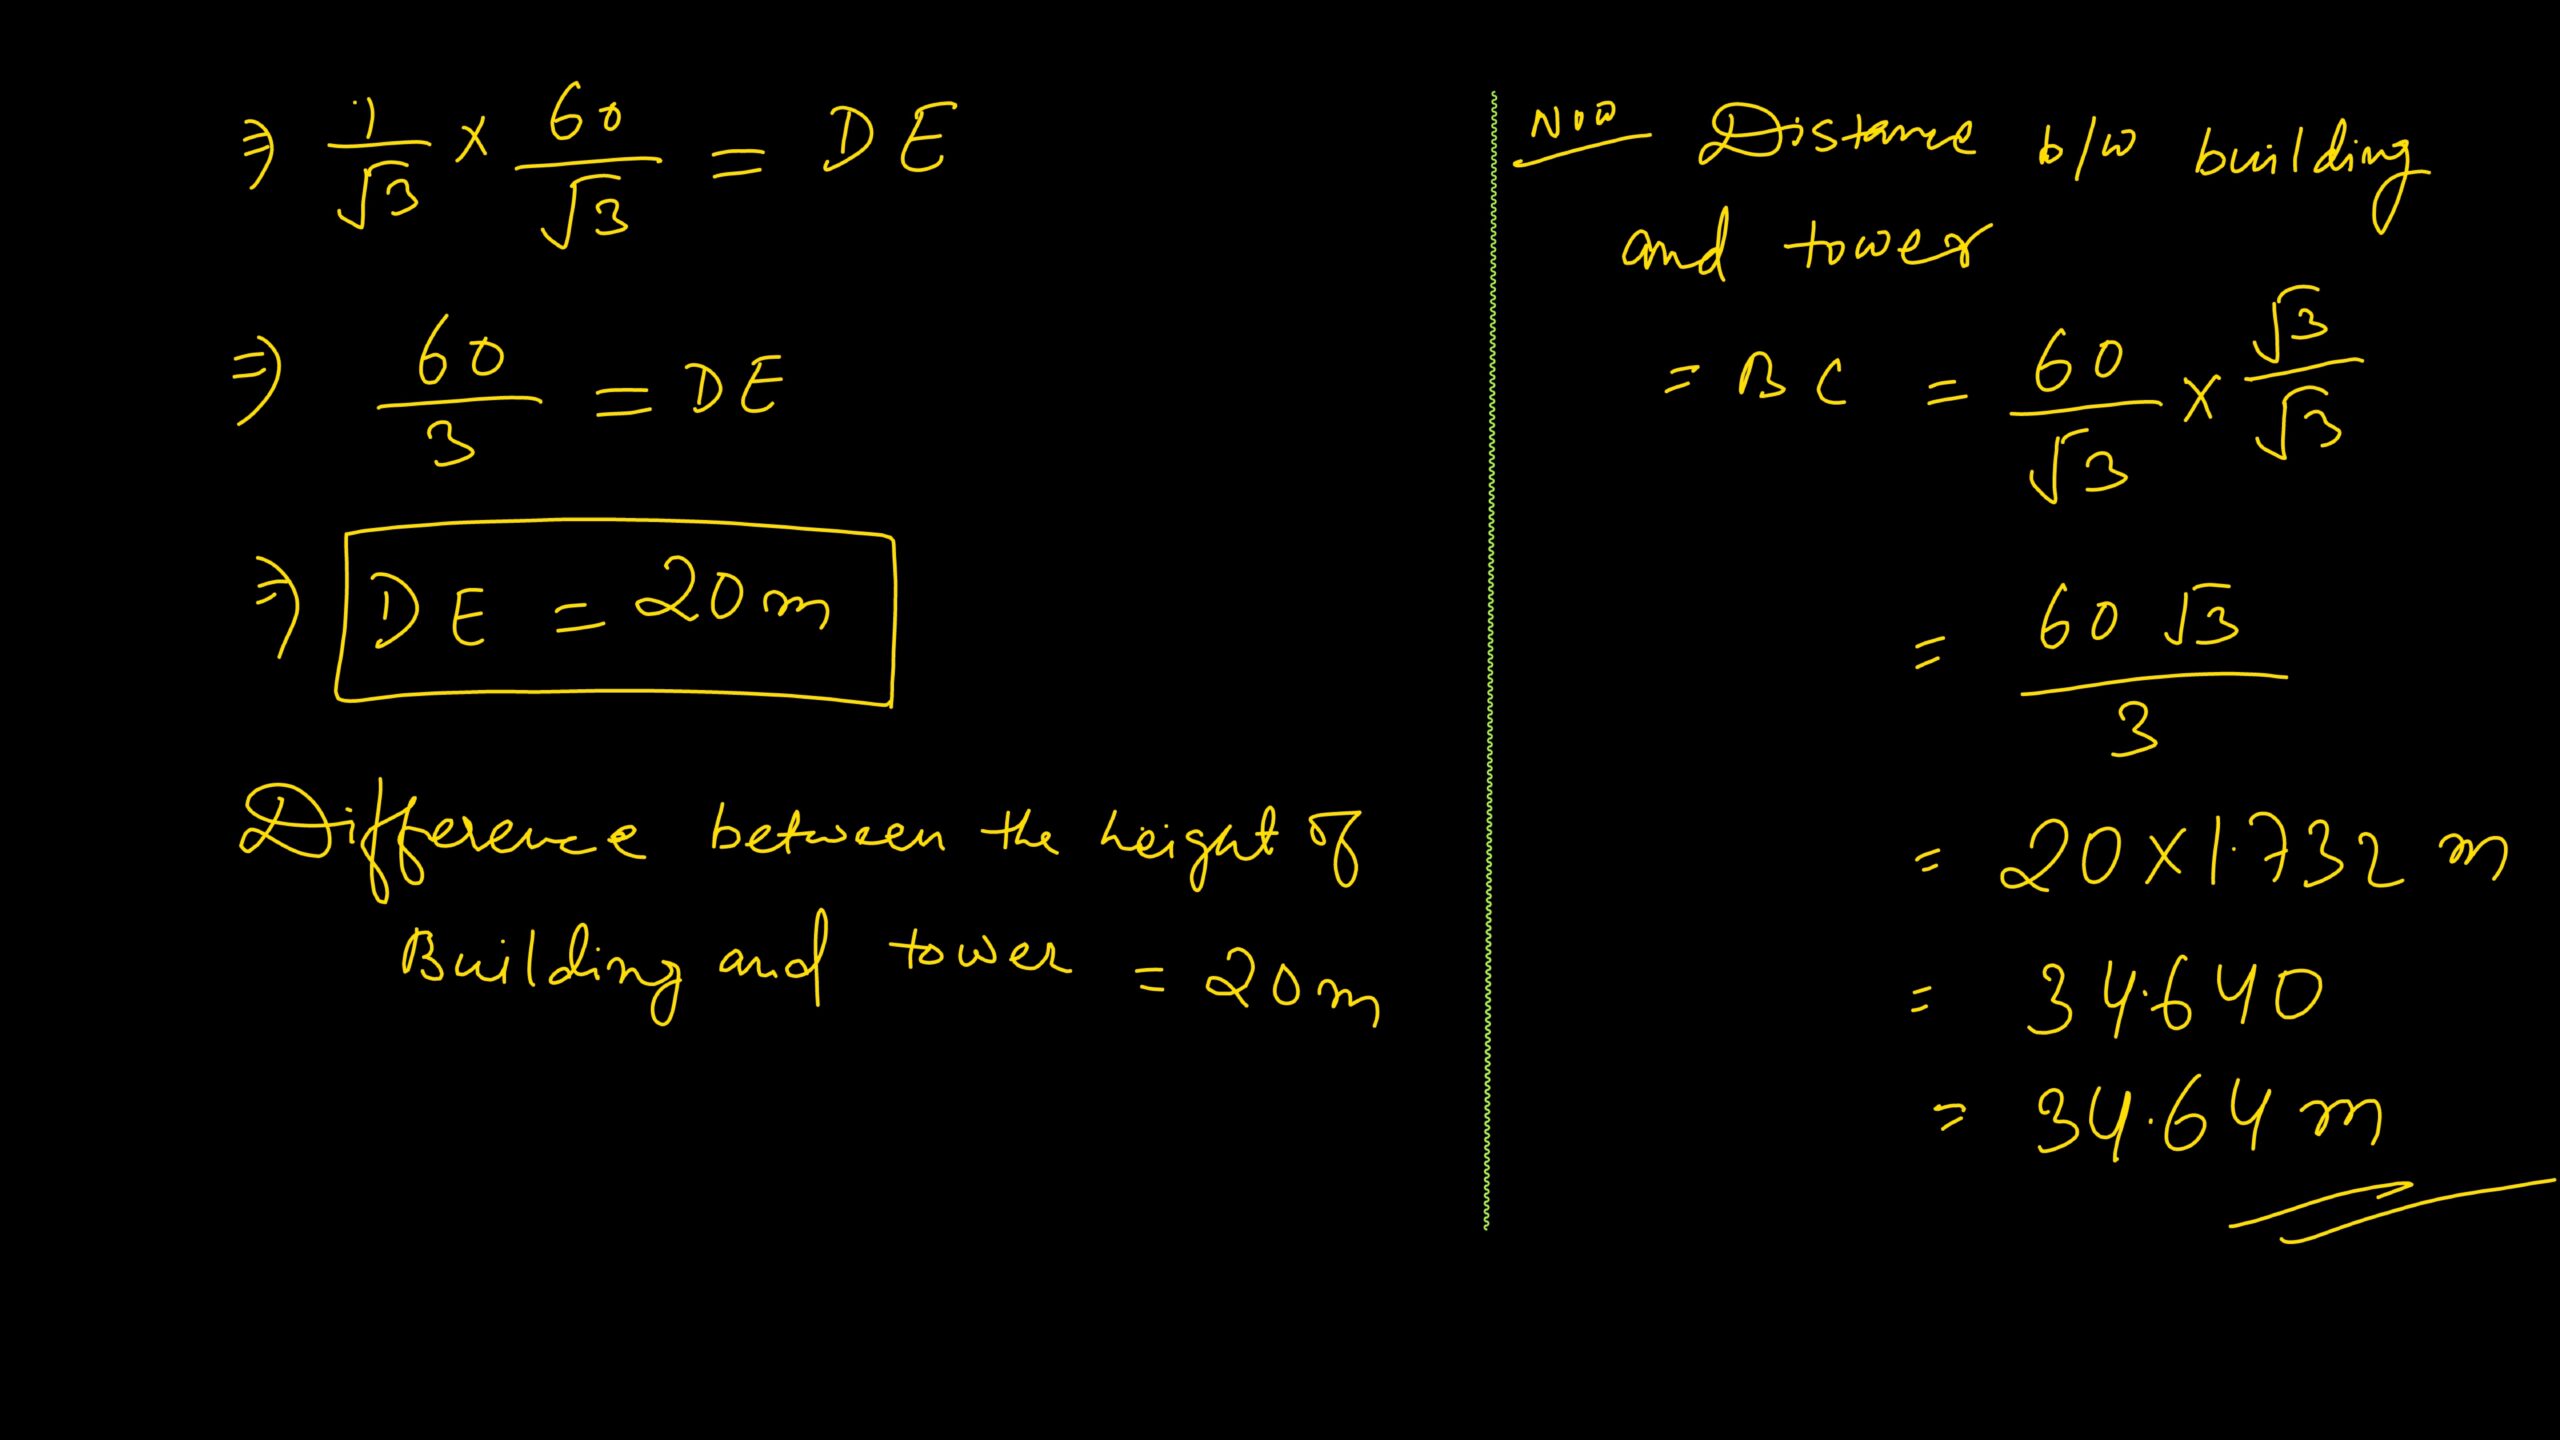 ⇒ 1/√3 × 60/√3 = DE
⇒ 60/3 = DE
⇒ DE = 20m
Difference between the height of
Building and tower = 20m
Now Distance b/w building
and tower
= BC = 60/√3 × √3/√3
= 60√3/3
= 20×1.732 m
= 34.640
= 34.64 m